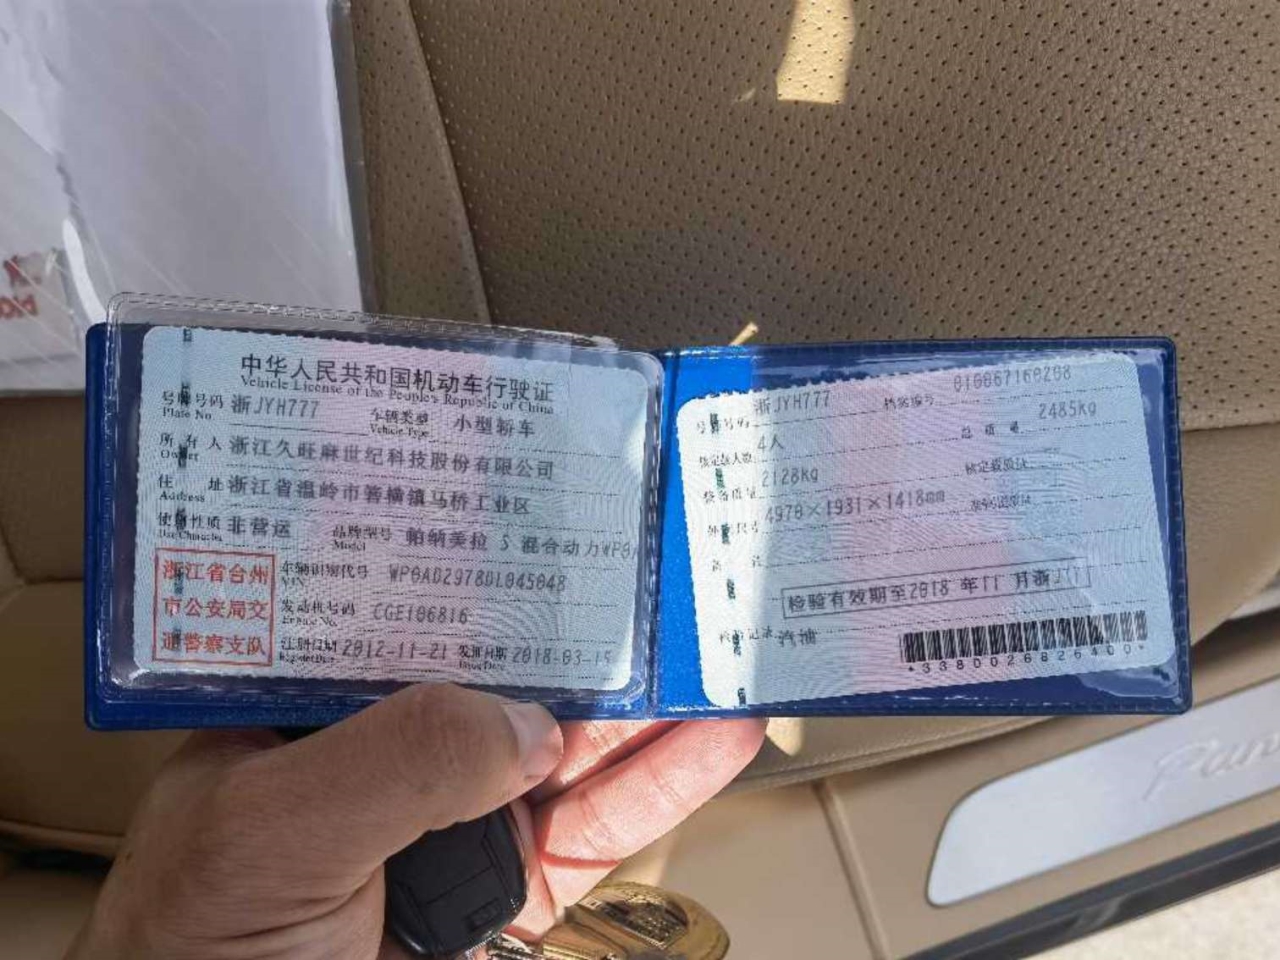 中华人民共和国机动车行驶证
Vehicle License of the People's Republic of China
号牌号码 浙JYH777 车辆类型 小型轿车
Plate No. Vehicle Type
所有人 浙江久旺麻世纪科技股份有限公司
Owner
住址 浙江省温岭市箬横镇马桥工业区
Address
使用性质 非营运 品牌型号 帕纳美拉 S 混合动力WP0A
Use Character Model
浙江省台州
市公安局交
通警察支队
车辆识别代号 WP0AD2978DL045048
VIN
发动机号码 CGE106816
Engine No.
注册日期 2012-11-21 发证日期 2018-03-15
Register Date Issue Date
号牌号码 浙JYH777 档案编号 010067160208
核定载人数 4人 总质量 2485kg
整备质量 2128kg 核定载质量
外廓尺寸 4970×1931×1418mm
备注
检验有效期至2018 年11 月浙J
检验记录 汽油
*3380026826400*
Pan